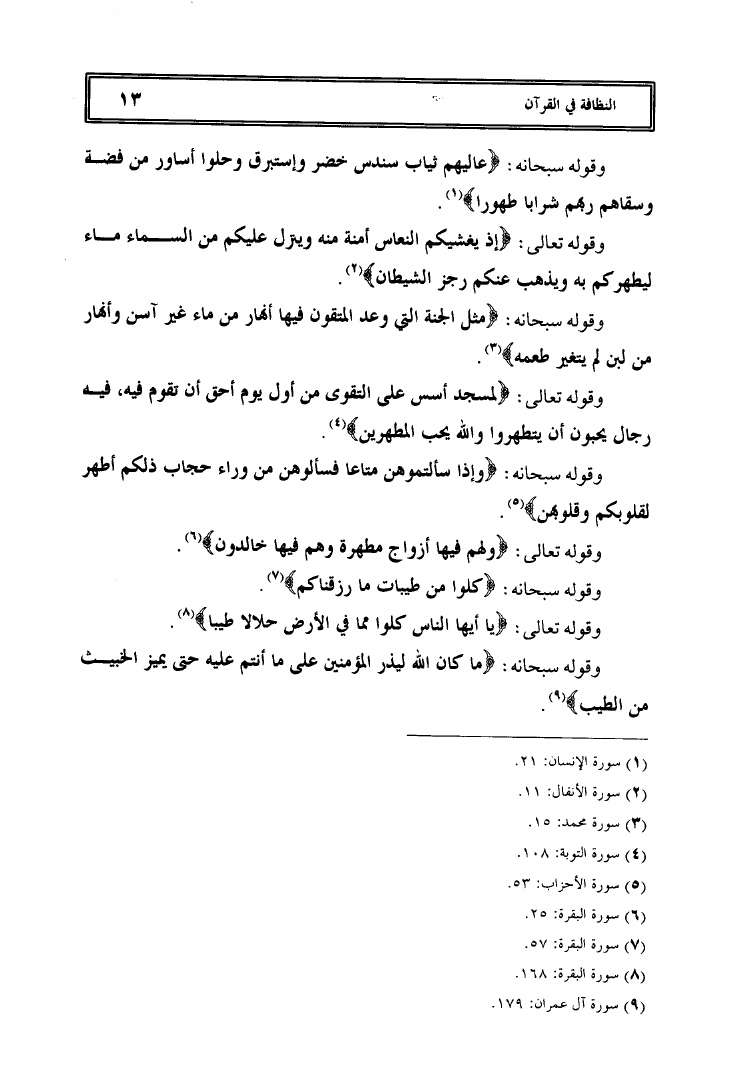 النظافة في القرآن ١٣
وقوله سبحانه: ﴿عاليهم ثياب سندس خضر وإستبرق وحلوا أساور من فضة
وسقاهم ربهم شرابا طهورا﴾(١).
وقوله تعالى: ﴿إذ يغشيكم النعاس أمنة منه وينزل عليكم من السماء ماء
ليطهركم به ويذهب عنكم رجز الشيطان﴾(٢).
وقوله سبحانه: ﴿مثل الجنة التي وعد المتقون فيها أنهار من ماء غير آسن وأنهار
من لبن لم يتغير طعمه﴾(٣).
وقوله تعالى: ﴿لمسجد أسس على التقوى من أول يوم أحق أن تقوم فيه، فيه
رجال يحبون أن يتطهروا والله يحب المطهرين﴾(٤).
وقوله سبحانه: ﴿وإذا سألتموهن متاعا فسألوهن من وراء حجاب ذلكم أطهر
لقلوبكم وقلوبهن﴾(٥).
وقوله تعالى: ﴿ولهم فيها أزواج مطهرة وهم فيها خالدون﴾(٦).
وقوله سبحانه: ﴿كلوا من طيبات ما رزقناكم﴾(٧).
وقوله تعالى: ﴿يا أيها الناس كلوا مما في الأرض حلالا طيبا﴾(٨).
وقوله سبحانه: ﴿ما كان الله ليذر المؤمنين على ما أنتم عليه حتى يميز الخبيث
من الطيب﴾(٩).
(١) سورة الإنسان: ٢١.
(٢) سورة الأنفال: ١١.
(٣) سورة محمد: ١٥.
(٤) سورة التوبة: ١٠٨.
(٥) سورة الأحزاب: ٥٣.
(٦) سورة البقرة: ٢٥.
(٧) سورة البقرة: ٥٧.
(٨) سورة البقرة: ١٦٨.
(٩) سورة آل عمران: ١٧٩.